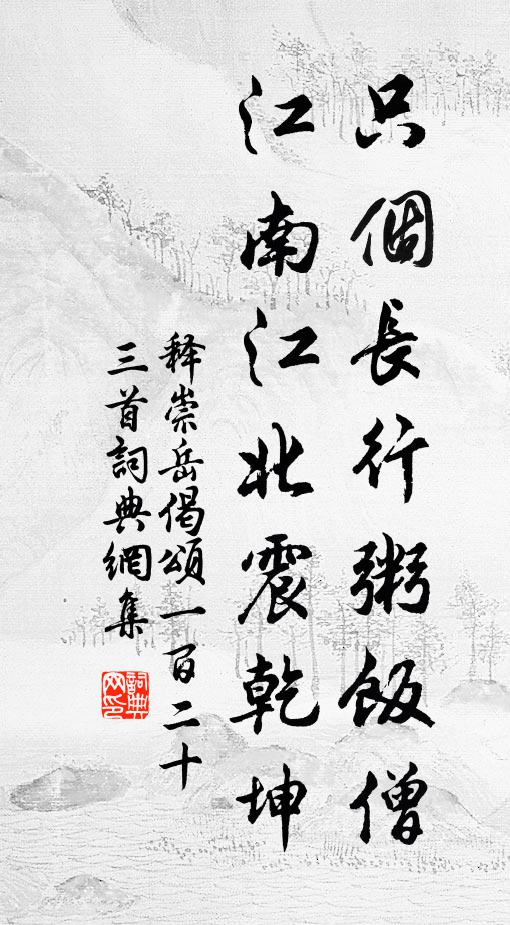 只個長行粥飯僧
江南江北震乾坤
释崇岳偈頌一百二十
三首詞典網集
詞典网印